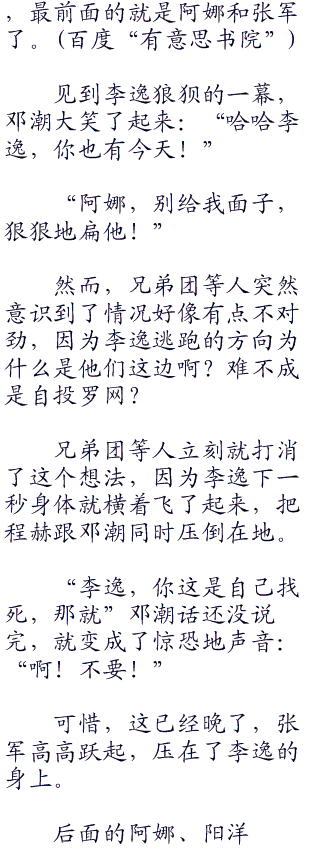 ，最前面的就是阿娜和张军
了。(百度“有意思书院”)
见到李逸狼狈的一幕，
邓潮大笑了起来：“哈哈李
逸，你也有今天！”
“阿娜，别给我面子，
狠狠地扁他！”
然而，兄弟团等人突然
意识到了情况好像有点不对
劲，因为李逸逃跑的方向为
什么是他们这边啊？难不成
是自投罗网？
兄弟团等人立刻就打消
了这个想法，因为李逸下一
秒身体就横着飞了起来，把
程赫跟邓潮同时压倒在地。
“李逸，你这是自己找
死，那就”邓潮话还没说
完，就变成了惊恐地声音：
“啊！不要！”
可惜，这已经晚了，张
军高高跃起，压在了李逸的
身上。
后面的阿娜、阳洋